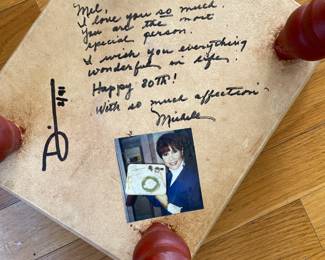 Mel,
I love you so much.
You are the most
special person.
I wish you everything
wonderful in life.
Happy 80th!
With so much affection -
Michele